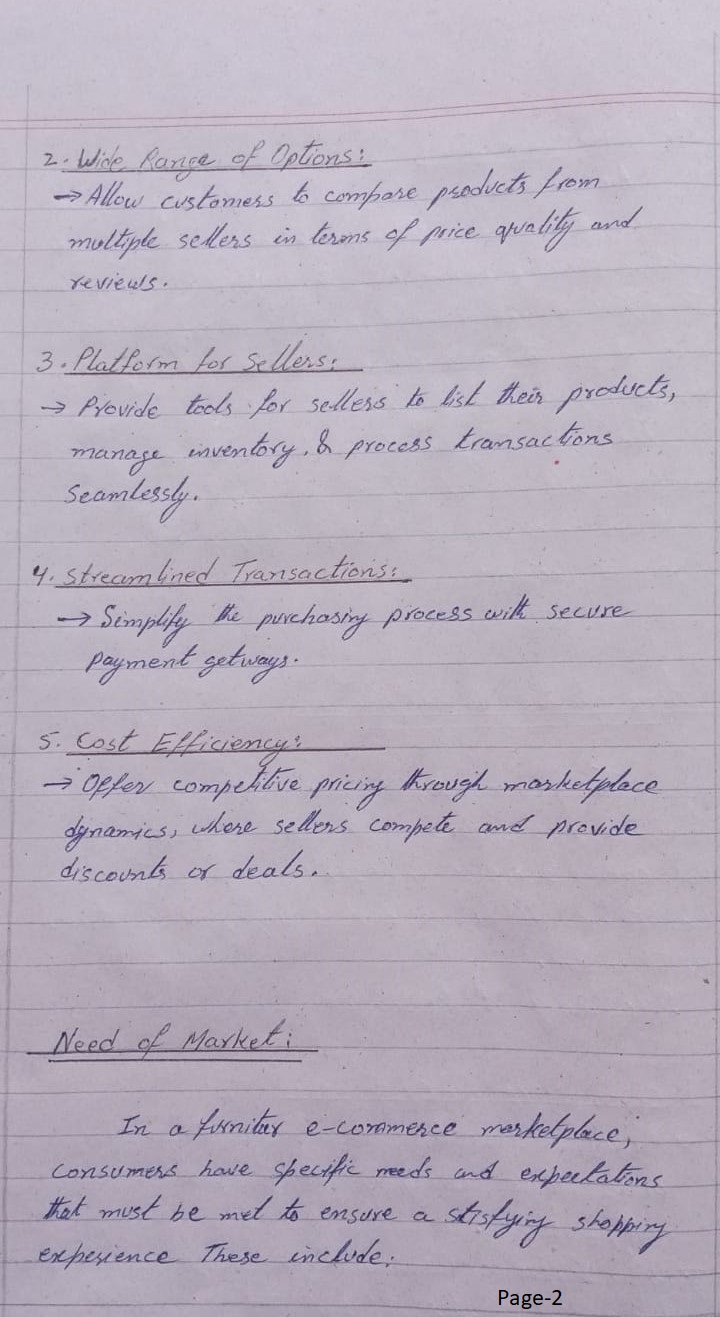 2. Wide Range of Options:
→ Allow customers to compare products from
multiple sellers in terms of price quality and
reviews.
3. Platform for Sellers:
→ Provide tools for sellers to list their products,
manage inventory, & process transactions
Seamlessly.
4. Streamlined Transactions:
→ Simplify the purchasing process with secure
Payment getways.
5. Cost Efficiency:
→ Offer competitive pricing through marketplace
dynamics, where sellers compete and provide
discounts or deals.
Need of Market:
In a furnitur e-commerce merketplace,
consumers have specific needs and expectations
that must be met to ensure a stisfying shopping
experience These include:
Page-2